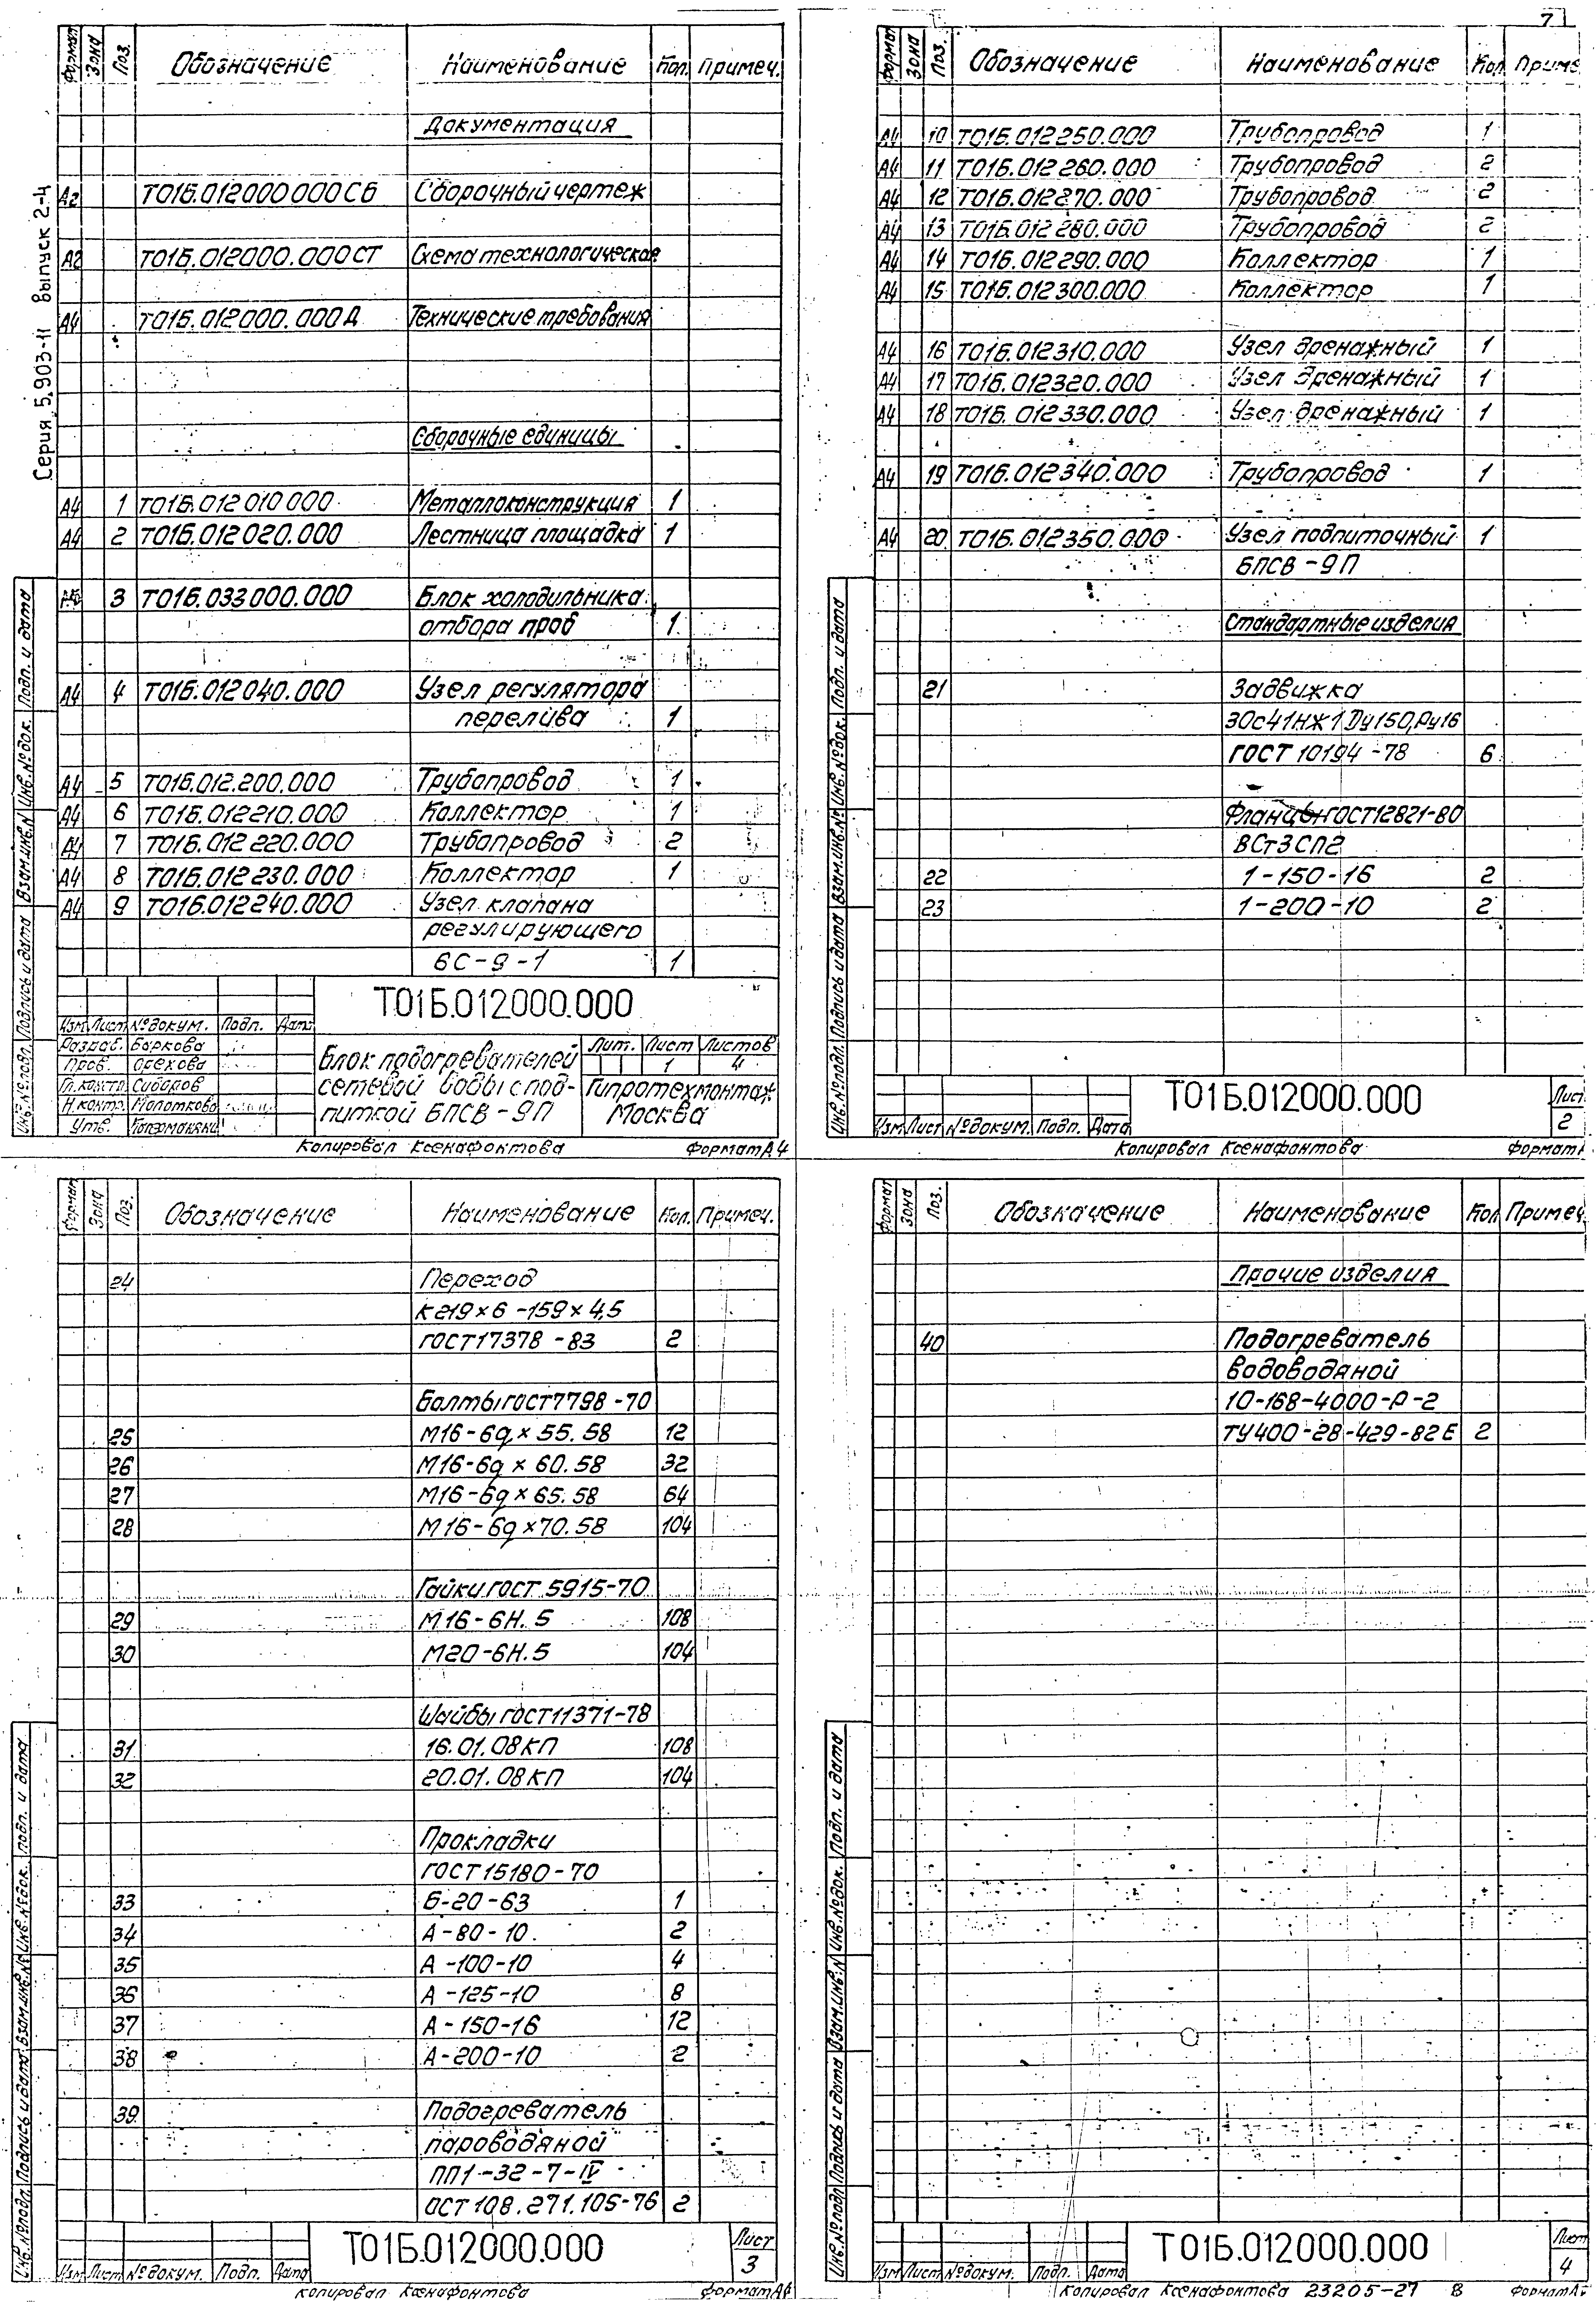 Серия 5.903-11 выпуск 2-4
Формат Зона Поз. Обозначение Наименование Кол. Примеч.
Документация
А2 Т01Б.012000000СБ Сборочный чертеж
А2 Т01Б.012000.000СТ Схема технологическая
А4 Т01Б.012000.000Д Технические требования
Сборочные единицы
А4 1 Т01Б.012010000 Металлоконструкция 1
А4 2 Т01Б.012020.000 Лестница площадка 1
3 Т01Б.033000.000 Блок холодильника
отбора проб 1
А4 4 Т01Б.012040.000 Узел регулятора
перелива 1
А4 5 Т01Б.012.200.000 Трубопровод 1
А4 6 Т01Б.012210.000 Коллектор 1
А4 7 Т01Б.012220.000 Трубопровод 2
А4 8 Т01Б.012230.000 Коллектор 1
А4 9 Т01Б.012240.000 Узел клапана
регулирующего
6С-9-1 1
Т01Б.012000.000
Изм Лист №докум. Подп. Дата
Разраб. Баркова
Пров. Орехова
Гл.констр. Сидоров
Н.контр. Молоткова
Утв.
Блок подогревателей
сетевой воды с под-
питкой БПСВ-9П
Лит. Лист Листов
1 4
Гипротехмонтаж
Москва
Инв.№подл. Подпись и дата Взам.инв.№ Инв.№док. Подп. и дата
Копировал Ксенафонтова Формат А4
7
Формат Зона Поз. Обозначение Наименование Кол Приме
А4 10 Т01Б.012250.000 Трубопровод 1
А4 11 Т01Б.012260.000 Трубопровод 2
А4 12 Т01Б.012270.000 Трубопровод 2
А4 13 Т01Б.012280.000 Трубопровод 2
А4 14 Т01Б.012290.000 Коллектор 1
А4 15 Т01Б.012300.000 Коллектор 1
А4 16 Т01Б.012310.000 Узел дренажный 1
А4 17 Т01Б.012320.000 Узел дренажный 1
А4 18 Т01Б.012330.000 Узел дренажный 1
А4 19 Т01Б.012340.000 Трубопровод 1
А4 20 Т01Б.012350.000 Узел подпиточный 1
БПСВ-9П
Стандартные изделия
21 Задвижка
30с41нж1 Ду150,Ру16
ГОСТ 10194-78 6
Фланцы ГОСТ12821-80
ВСт3СП2
22 1-150-16 2
23 1-200-10 2
Т01Б.012000.000
Изм Лист №докум. Подп. Дата
Лист
2
Инв.№подл. Подпись и дата Взам.инв.№ Инв.№док. Подп. и дата
Копировал Ксенафонтова Формат
Формат Зона Поз. Обозначение Наименование Кол. Примеч.
24 Переход
К219×6-159×4,5
ГОСТ17378-83 2
Болты ГОСТ7798-70
25 М16-6g×55.58 12
26 М16-6g×60.58 32
27 М16-6g×65.58 64
28 М16-6g×70.58 104
Гайки ГОСТ 5915-70
29 М16-6Н.5 108
30 М20-6Н.5 104
Шайбы ГОСТ11371-78
31 16.01.08КП 108
32 20.01.08КП 104
Прокладки
ГОСТ15180-70
33 Б-20-63 1
34 А-80-10. 2
35 А-100-10 4
36 А-125-10 8
37 А-150-16 12
38 А-200-10 2
39. Подогреватель
пароводяной
ПП1-32-7-IV
ОСТ 108.271.105-76 2
Т01Б.012000.000
Изм Лист №докум. Подп. Дата
Лист
3
Инв.№подл. Подпись и дата Взам.инв.№ Инв.№док. Подп. и дата
Копировал Ксенафонтова Формат А4
Формат Зона Поз. Обозначение Наименование Кол Примеч.
Прочие изделия
40 Подогреватель
водоводяной
10-168-4000-Р-2
ТУ400-28-429-82Е 2
Т01Б.012000.000
Изм Лист №докум. Подп. Дата
Лист
4
Инв.№подл. Подпись и дата Взам.инв.№ Инв.№док. Подп. и дата
Копировал Ксенафонтова 23205-27 8 Формат А4